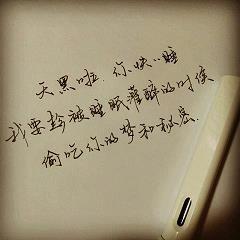 天黑啦.你快睡
我要趁被睡眠灌醉的时候
偷吃你的梦和秘密.